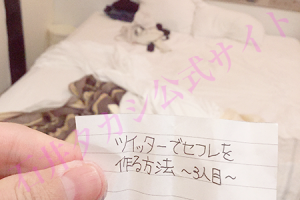 ツイッターでセフレを
作る方法 ~3人目~
タカシ公式サイト